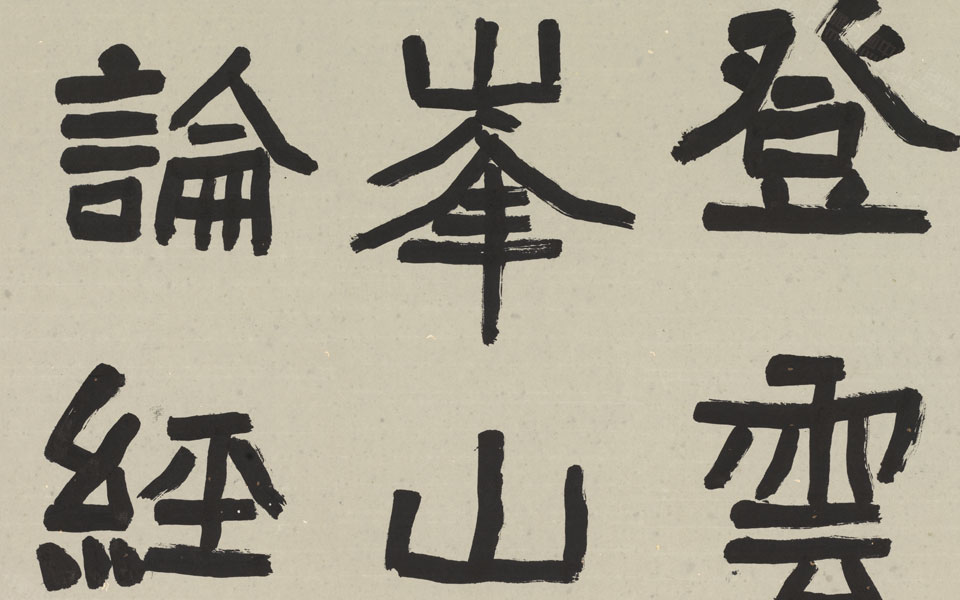 登雲
峯山
論経